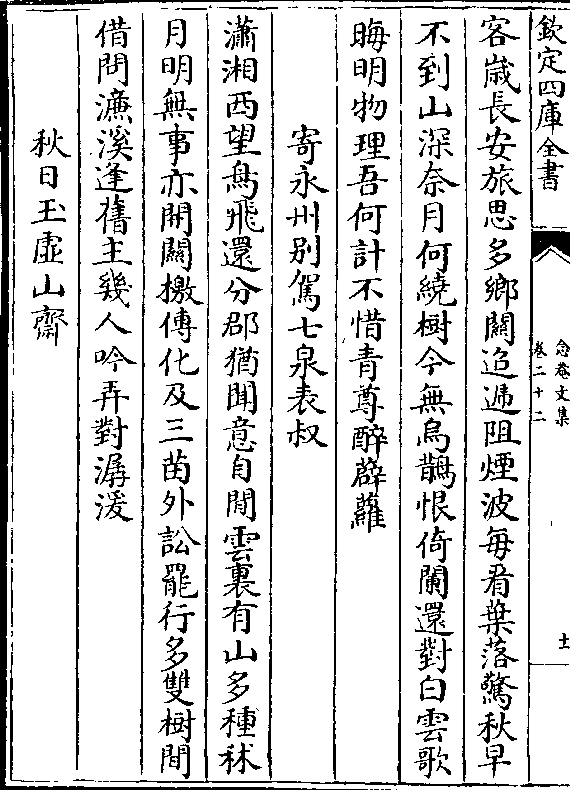 欽定四庫全書
念菴文集
卷二十二
十一
客嵗長安旅思多鄉關迢遞阻煙波每看葉落驚秋早
不到山深奈月何繞樹今無烏鵲恨倚闌還對白雲歌
晦明物理吾何計不惜青尊醉薜蘿
寄永州别駕七泉表叔
瀟湘西望鳥飛還分郡猶聞意自閒雲裏有山多種秫
月明無事亦開關檄傳化及三苗外訟罷行多雙樹間
借問濓溪逢舊主幾人吟弄對潺湲
秋日玉虛山齋